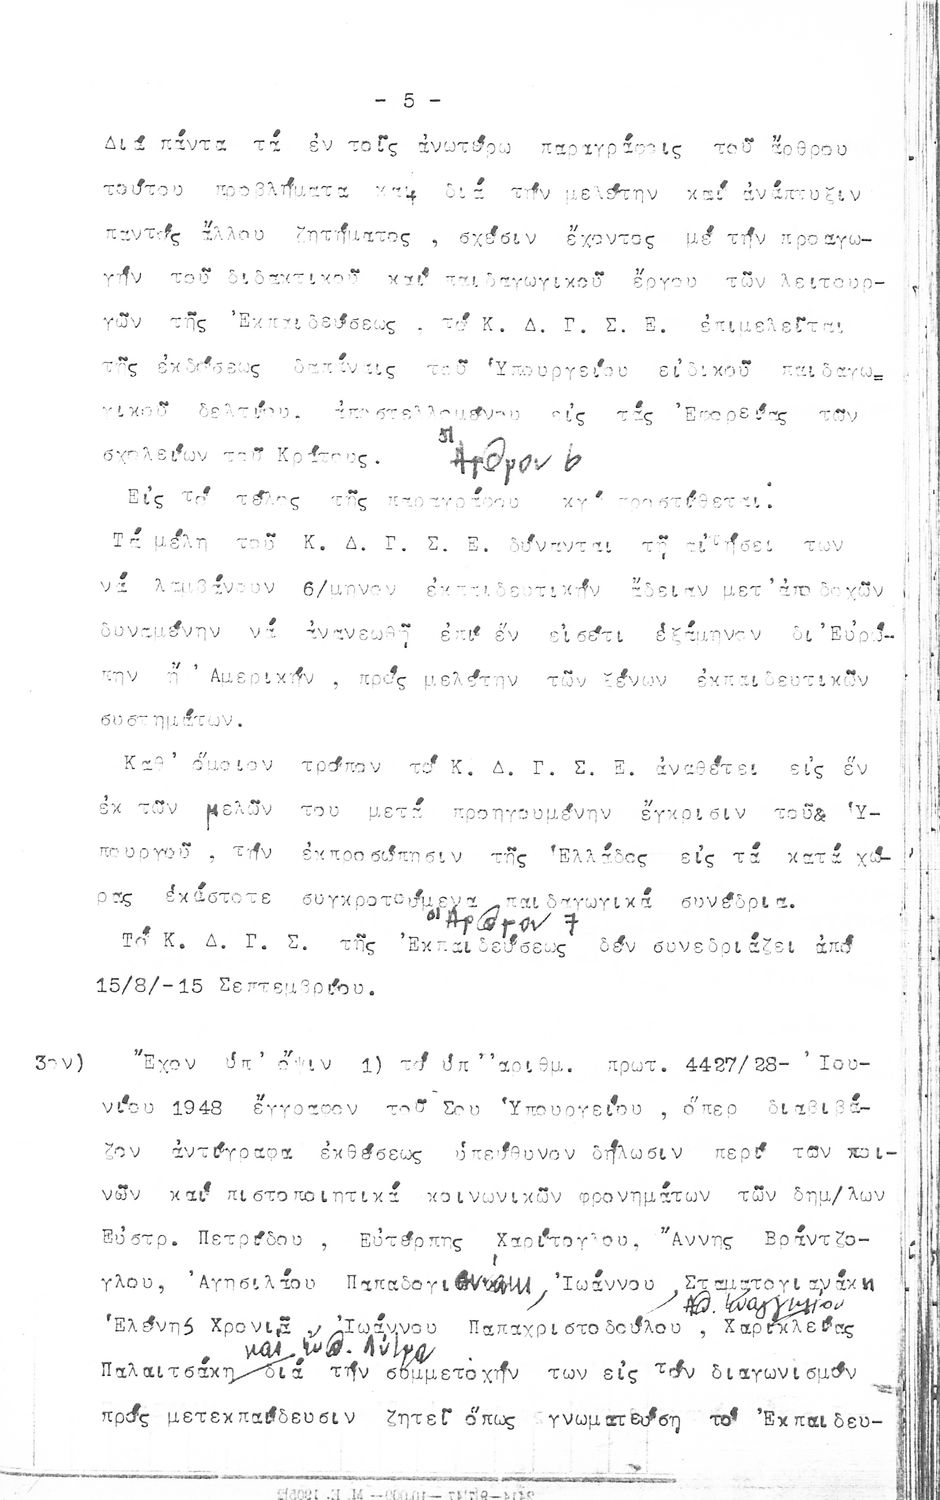 - 5 -
Διά πάντα τά ἐν τοῖς ἀνωτέρω παραγράφοις τοῦ ἄρθρου
τούτου προβλήματα καί διά τήν μελέτην καί ἀνάπτυξιν
παντός ἄλλου ζητήματος , σχέσιν ἔχοντος μέ τήν προαγω-
γήν τοῦ διδακτικοῦ καί παιδαγωγικοῦ ἔργου τῶν λειτουρ-
γῶν τῆς Ἐκπαιδεύσεως , τό Κ. Δ. Γ. Σ. Ε. ἐπιμελεῖται
τῆς ἐκδόσεως δαπάναις τοῦ Ὑπουργείου εἰδικοῦ παιδαγω=
γικοῦ δελτίου. ἀποστελλομένου εἰς τάς Ἐφορείας τῶν
σχολείων τοῦ Κράτους.
Ἄρθρον 6
Εἰς τό τέλος τῆς παραγράφου κγ' προστίθεται.
Τά μέλη τοῦ Κ. Δ. Γ. Σ. Ε. δύνανται τῇ αἰτήσει των
νά λαμβάνουν 6/μηνον ἐκπαιδευτικήν ἄδειαν μετ'ἀποδοχῶν
δυναμένην νά ἀνανεωθῇ ἐπί ἕν εἰσέτι ἑξάμηνον δι'Εὐρώ-
πην ἤ 'Αμερικήν , πρός μελέτην τῶν ξένων ἐκπαιδευτικῶν
συστημάτων.
Καθ' ὅμοιον τρόπον τό Κ. Δ. Γ. Σ. Ε. ἀναθέτει εἰς ἕν
ἐκ τῶν μελῶν του μετά προηγουμένην ἔγκρισιν τοῦ& Ὑ-
πουργοῦ , τήν ἐκπροσώπησιν τῆς Ἑλλάδος εἰς τά κατά χώ-
ρας ἑκάστοτε συγκροτούμενα παιδαγωγικά συνέδρια.
Ἄρθρον 7
Τό Κ. Δ. Γ. Σ. τῆς Ἐκπαιδεύσεως δέν συνεδριάζει ἀπό
15/8/-15 Σεπτεμβρίου.
3ον) Ἔχον ὑπ' ὄψιν 1) τό ὑπ''αριθμ. πρωτ. 4427/28- 'Ιου-
νίου 1948 ἔγγραφον τοῦ Σου Ὑπουργείου , ὅπερ διαβιβά-
ζον ἀντίγραφα ἐκθέσεως ὑπεύθυνον δήλωσιν περί των ποι-
νῶν καί πιστοποιητικά κοινωνικῶν φρονημάτων τῶν δημ/λων
Εὐστρ. Πετρίδου , Εὐτέρπης Χαρίτογλου, Ἄννης Βράντζο-
γλου, Ἀγησιλάου Παπαδογιαννάκη, Ἰωάννου Σταματογιανάκη
Ἀθ. Εὐαγγελίου
Ἑλένης Χρονιᾶ , Ἰωάννου Παπαχριστοδούλου , Χαρικλείας
καί
Παλαιτσάκη διά τήν συμμετοχήν των εἰς τόν διαγωνισμόν
πρός μετεκπαίδευσιν ζητεῖ ὅπως γνωματεύσῃ τό Ἐκπαιδευ-